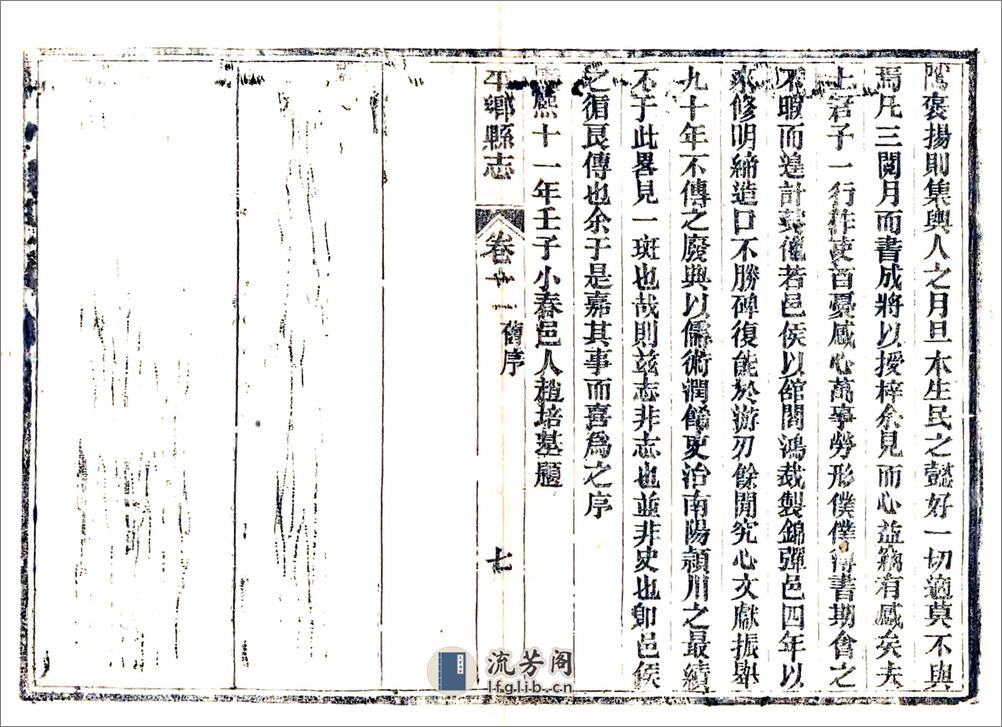 隲褒揚則集輿人之月旦本生民之懿好一切適莫不與
焉凡三閱月而書成將以授梓余見而心益竊有感矣夫
士君子一行作吏百憂感心萬事勞形僕僕簿書期會之
不暇而遑計其他若邑侯以舘閣鴻裁製錦彈邑四年以
來修明締造口不勝碑復能於游刃餘閒究心文獻振舉
九十年不傳之廢典以儒術潤餙吏治南陽潁川之最績
不于此畧見一斑也哉則兹志非志也並非史也卽邑侯
之循良傳也余于是嘉其事而喜爲之序
熙十一年壬子小春邑人趙培基題
平鄉縣志
卷十一 舊序
七
流芳阁
lfglib.cn